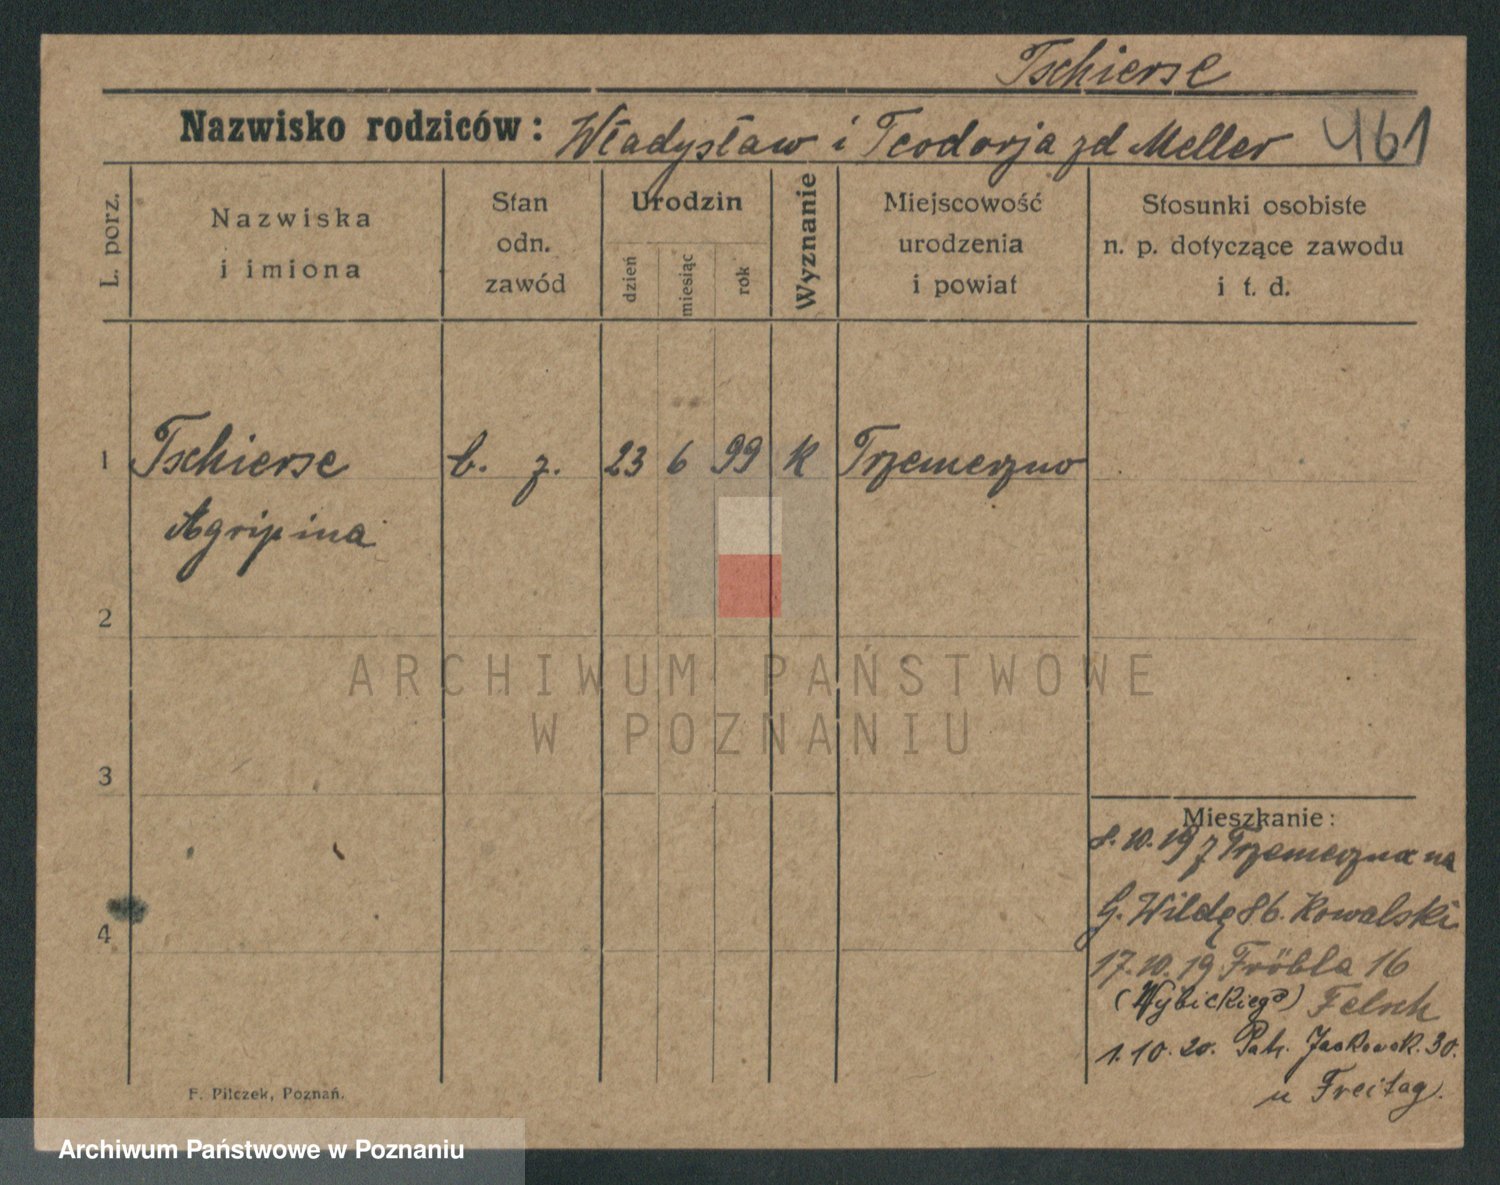 Tschierse
Nazwisko rodziców: Władysław i Teodorja zd Meller 461
L. porz.
Nazwiska
i imiona
Stan
odn.
zawód
Urodzin
dzień
miesiąc
rok
Wyznanie
Miejscowość
urodzenia
i powiat
Stosunki osobiste
n. p. dotyczące zawodu
i t. d.
1 Tschierse b. z. 23 6 99 k Trzemeszno
Agripina
2
3
4
ARCHIWUM PAŃSTWOWE
W POZNANIU
Mieszkanie:
8.10.19 z Trzemeszna na
G. Wildę 86. Kowalski
17.10.19 Fröbla 16
(Wybickiego) Felsch
1.10.20. Jackowsk. 30.
u Freitag.
F. Pilczek, Poznań.
Archiwum Państwowe w Poznaniu